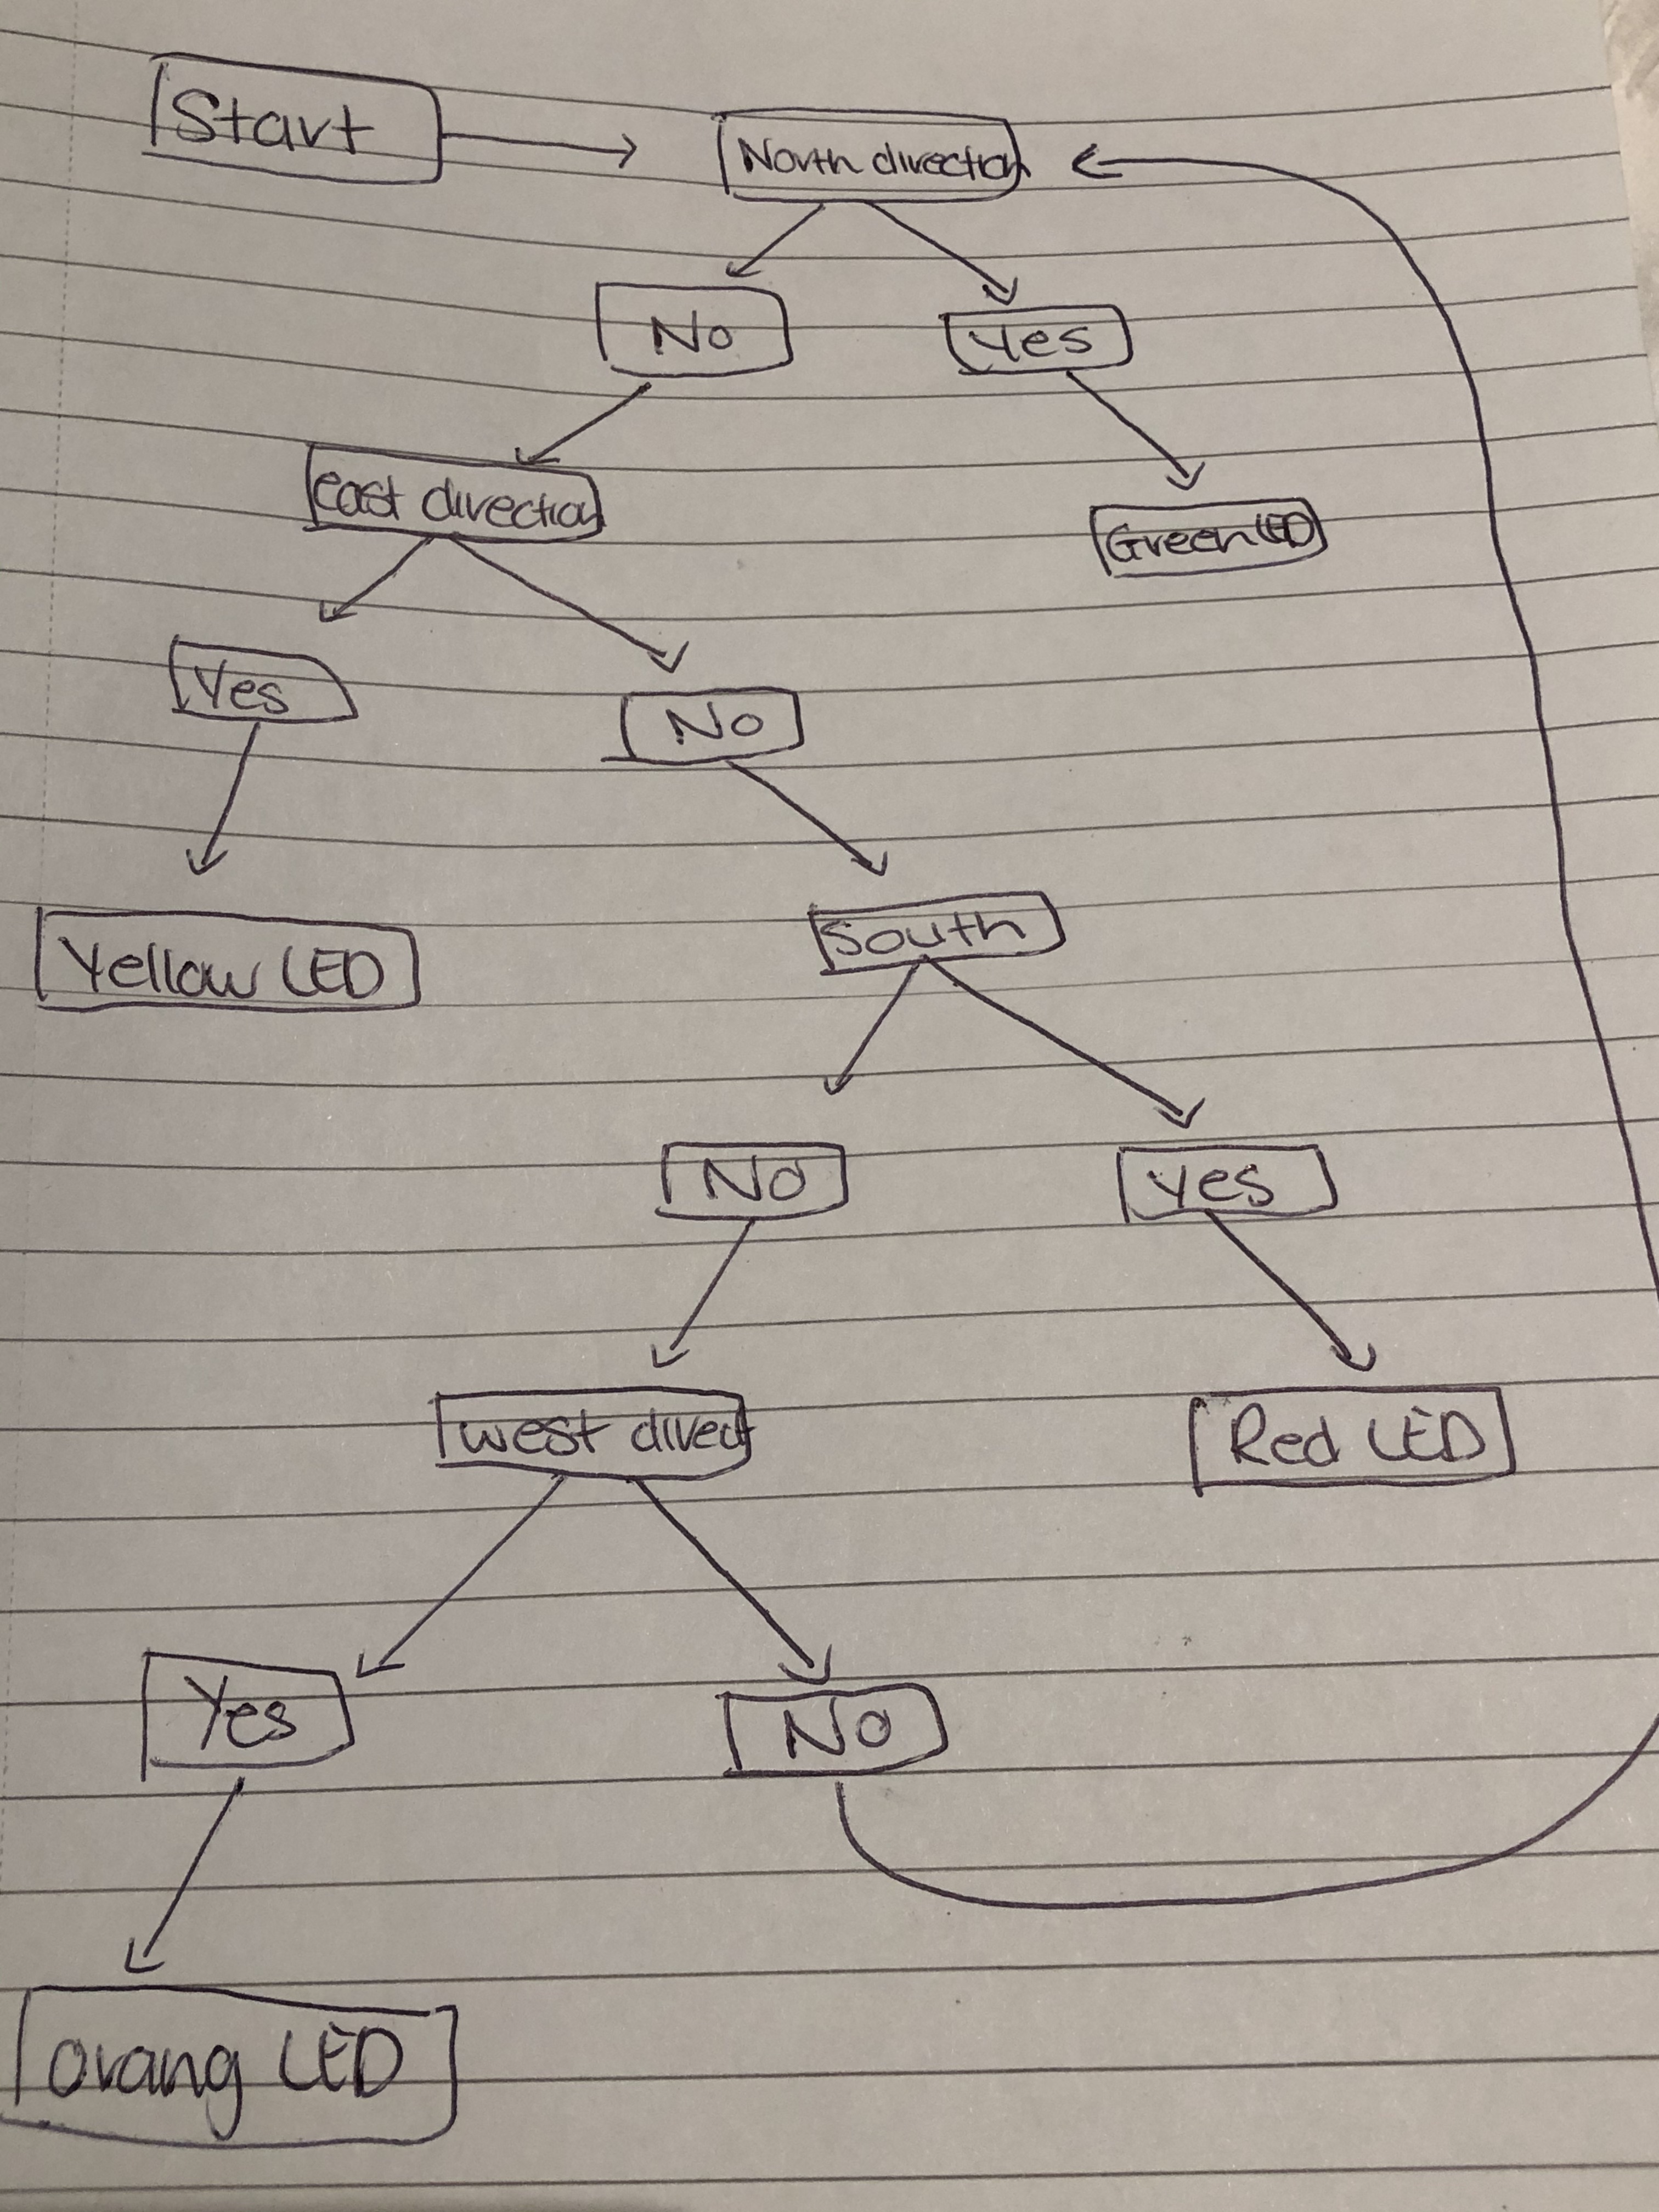 Start
North direction
No
Yes
east direction
Green LED
Yes
No
Yellow LED
South
No
yes
west direct
Red LED
Yes
No
orang LED